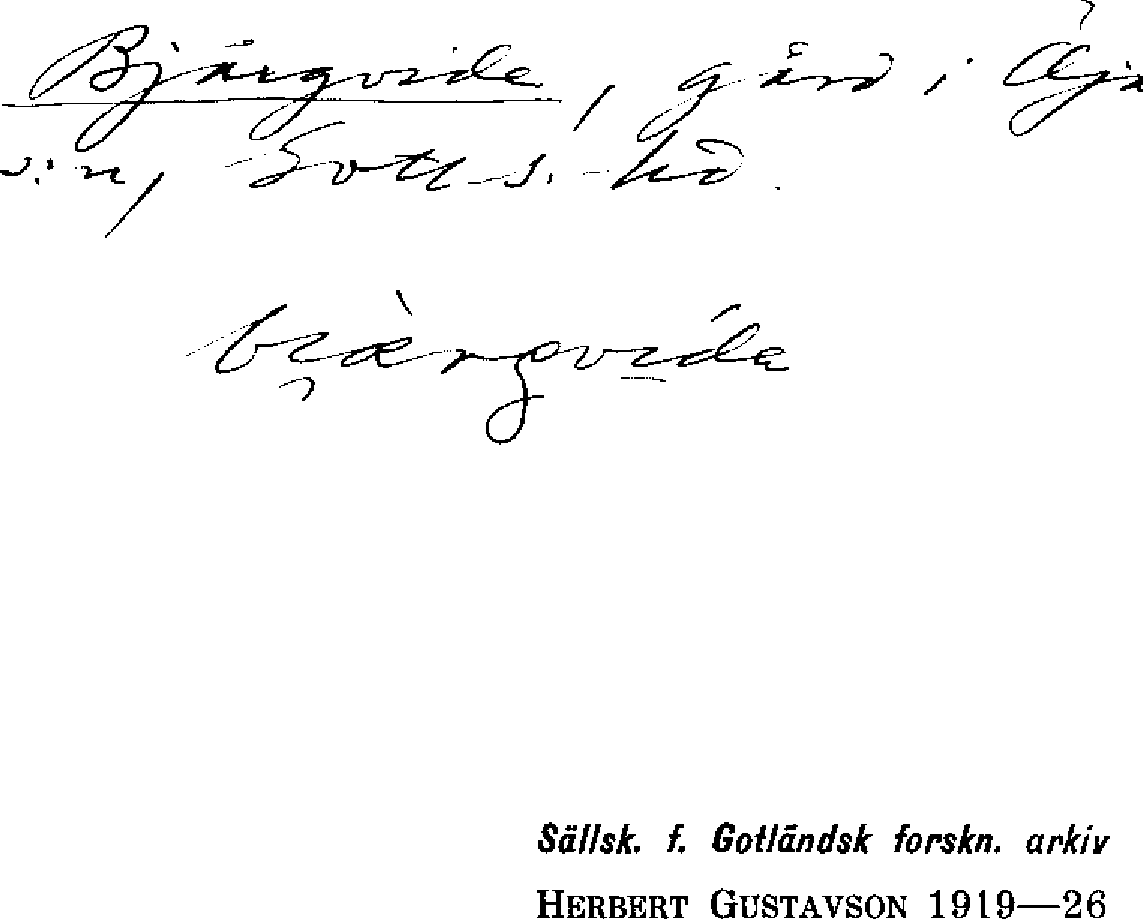 Bjärgvide, gård i Öja
s:n, Gotl. s. hd.
bi̯æ̀rgví̱da
Sällsk. f. Gotländsk forskn. arkiv
HERBERT GUSTAVSON 1919—26